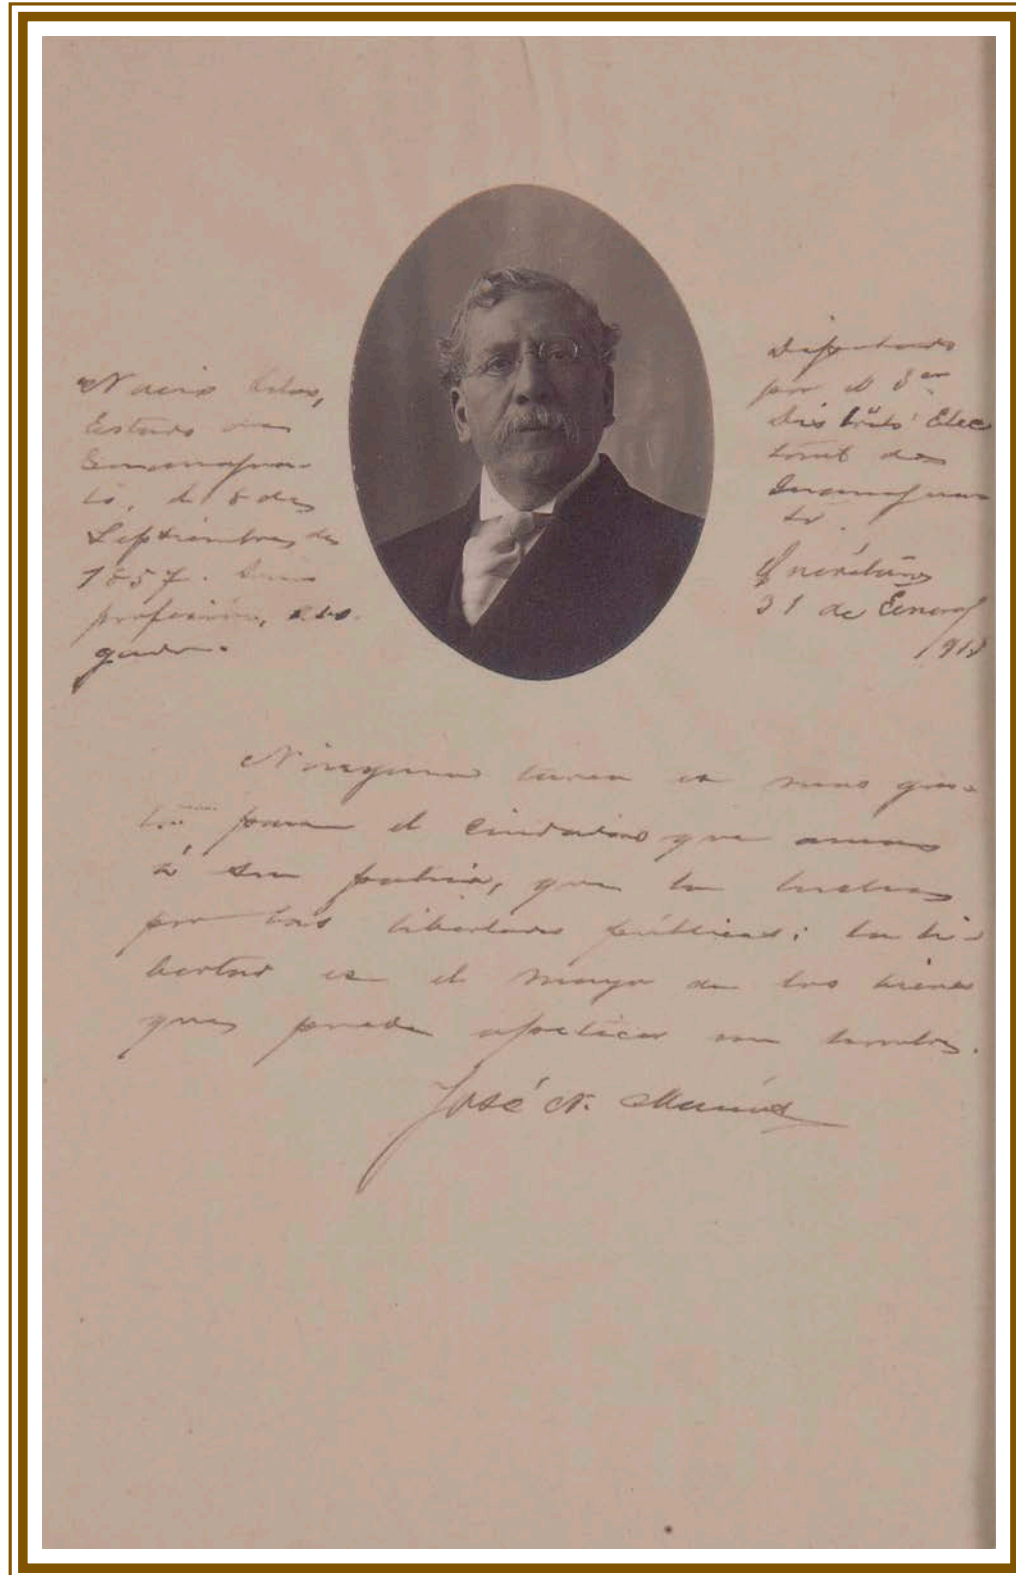 Nació Silao,
Estado de
Guanajua-
to, el 8 de
Septiembre de
1857. Su
profesión, abo-
gado.
Diputado
por el 3er
Distrito Elec
toral de
Guanajua
to.
Querétaro
31 de Enero
Ninguna tarea es mas gra-
ta para el ciudadano que ama
á su patria, que la lucha
por las libertades públicas; la li-
bertad es el mayor de los bienes
que puede apetecer un hombre.
José N.